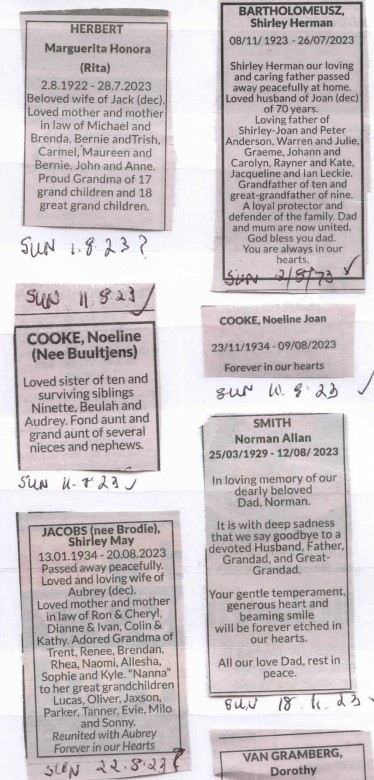 HERBERT
Marguerita Honora
(Rita)
2.8.1922 - 28.7.2023
Beloved wife of Jack (dec).
Loved mother and mother
in law of Michael and
Brenda, Bernie andTrish,
Carmel, Maureen and
Bernie, John and Anne.
Proud Grandma of 17
grand children and 18
great grand children.
SUN 1.8.23?
BARTHOLOMEUSZ,
Shirley Herman
08/11/ 1923 - 26/07/2023
Shirley Herman our loving
and caring father passed
away peacefully at home.
Loved husband of Joan (dec)
of 70 years.
Loving father of
Shirley-Joan and Peter
Anderson, Warren and Julie,
Graeme, Johann and
Carolyn, Rayner and Kate,
Jacqueline and Ian Leckie.
Grandfather of ten and
great-grandfather of nine.
A loyal protector and
defender of the family. Dad
and mum are now united.
God bless you dad.
You are always in our
hearts.
SUN 2/8/23
SUN 11 8.23
COOKE, Noeline
(Nee Buultjens)
Loved sister of ten and
surviving siblings
Ninette, Beulah and
Audrey. Fond aunt and
grand aunt of several
nieces and nephews.
SUN 11.8.23
COOKE, Noeline Joan
23/11/1934 - 09/08/2023
Forever in our hearts
SUN 10.8.23
SMITH
Norman Allan
25/03/1929 - 12/08/ 2023
In loving memory of our
dearly beloved
Dad, Norman.
It is with deep sadness
that we say goodbye to a
devoted Husband, Father,
Grandad, and Great-
Grandad.
Your gentle temperament,
generous heart and
beaming smile
will be forever etched in
our hearts.
All our love Dad, rest in
peace.
SUN 18. 23
JACOBS (nee Brodie),
Shirley May
13.01.1934 - 20.08.2023
Passed away peacefully.
Loved and loving wife of
Aubrey (dec).
Loved mother and mother
in law of Ron & Cheryl,
Dianne & Ivan, Colin &
Kathy. Adored Grandma of
Trent, Renee, Brendan,
Rhea, Naomi, Allesha,
Sophie and Kyle. "Nanna"
to her great grandchildren
Lucas, Oliver, Jaxson,
Parker, Tanner, Evie, Milo
and Sonny.
Reunited with Aubrey
Forever in our Hearts
SUN 22.8.23?
VAN GRAMBERG,
Dorothy